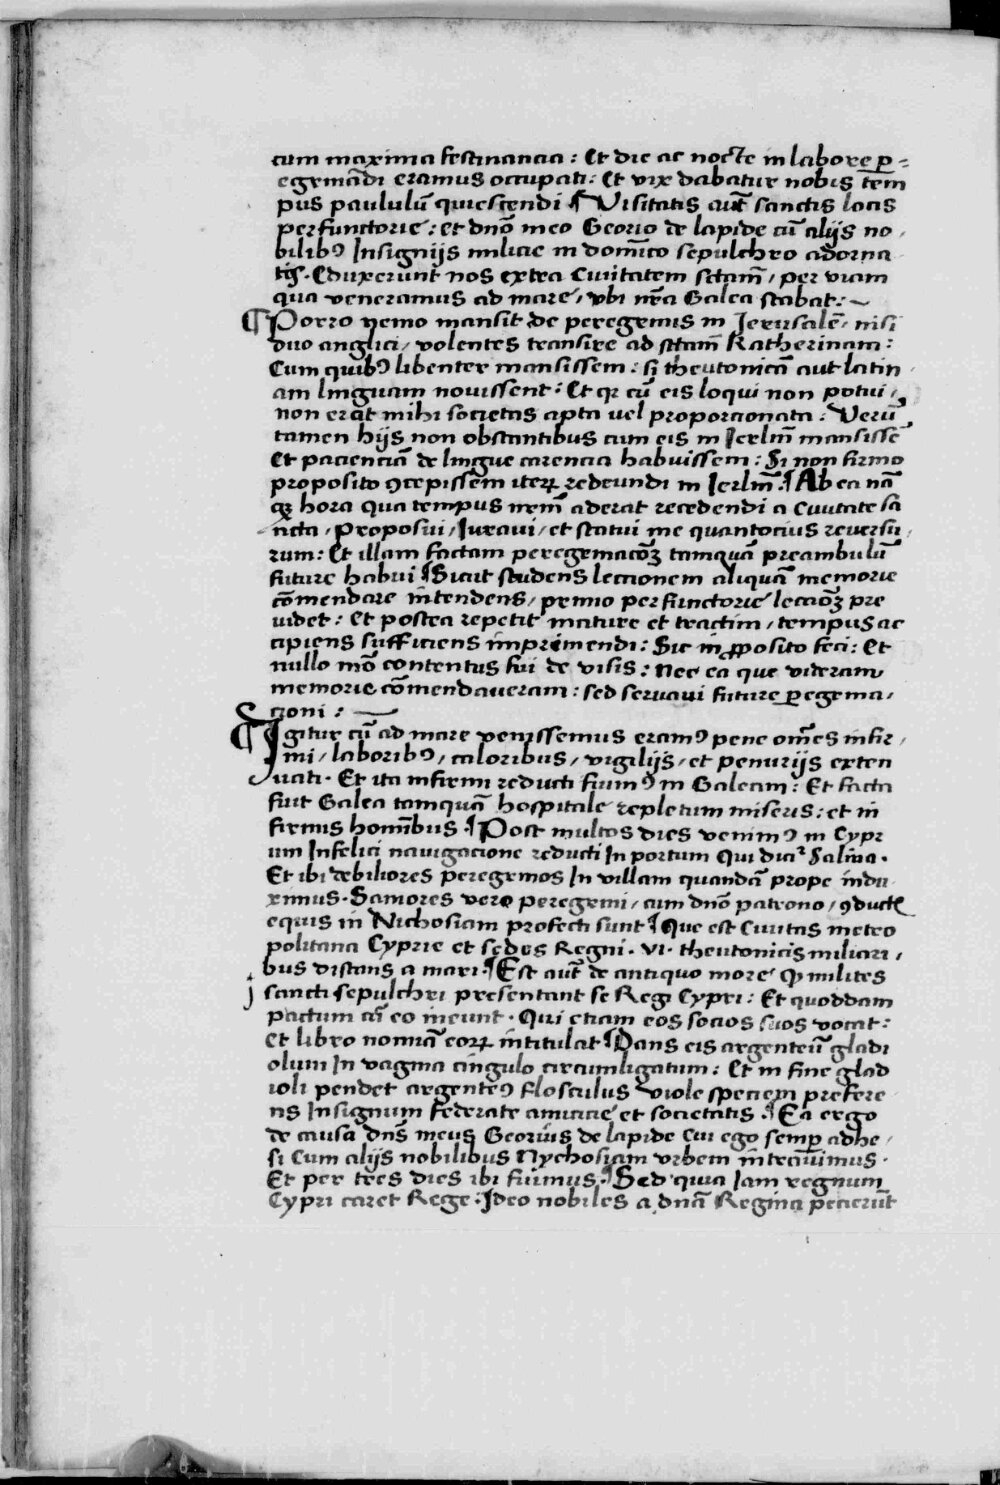 cum maxima festinancia : Et die ac nocte in labore p̱=
egrināndi eramus occupati : Et vix dabatur nobis tēm
pus paululū quiescendi ¶ Visitatis aut̄ sanctis locis
perfunctorie : et dn̄o meo Georio de lapide cū alijs no
bilibꝰ Insignijs milicie in domīco sepulchro adorna
tis · Eduxerunt nos extra Ciuitatem sctam̄ / per viam
qua veneramus ad mare / vbi nr̄a Galea stabat : ~
¶ Porro nemo mansit de peregrinis in Jerusalē / nisi
duo anglici / volentes transire ad sctam̄ Katherinam :
Cum quibꝰ libenter mansissem : si theutonicā aut latin
am linguam nouissent : Et qr cū eis loqui non potui /
non erat mihi societas apta vel proporcionata : Verū
tamen hijs non obstantibus cum eis in Jerlm̄ mansissē
Et pacienciā de lingue carencia habuissem : Si non firmo
proposito ꝯcepissem iteꝝ redeundi in Jerlm̄ · ¶ Ab ea nā
qꝫ hora qua tempus nr̄m aderat recedendi a Ciuitate sā
ncta / Proposui / Iuraui / et statui me quantocius reuersu
rum : Et illam factam peregrinacōꝫ tamquā preambulū
future habui ¶ Sicut studens leccionem aliquā memorie
cōmendare intendens / primo perfunctorie leccōꝫ pre
uidet : Et postea repetit mature et tractim / tempus ac
cipiens sufficiens imprimendi : Sic in ꝓposito feci : Et
nullo mō contentus fui de visis : Nec ea que videram
memorie cōmendaueram : sed seruaui future p̱egrina /
cioni : ~
¶ Igitur cū ad mare venissemus eramꝰ pene om̄es infir /
mi / laboribꝰ / caloribus / vigilijs / et penurijs exten
uati · Et ita infirmi reducti fuimꝰ in Galeam : Et facta
fuit Galea tamquā hospitale repletum miseris : et in
firmis hominībus · ¶ Post multos dies venimꝰ in Cypr
um Infelici nauigacione reducti In portum Qui dicit̉ Salīna ·
Et ibi debiliores peregrinos In villam quandā prope indu
ximus · Saniores vero peregrini / cum dn̄o patrono / ꝯductis
equis in Nichosiam profecti sunt ¶ Que est Ciuitas metro
politana Cyprie et sedes Regni · VI · theutonicis miliari /
bus distans a mari · ¶ Est aut̄ de antiquo more ꝙ milites
sancti sepulchri presentant se Regi Cypri : Et quoddam
pactum cū eo ineunt · Qui etiam eos socios suos vocat :
Et libro nominā eoꝝ intitulat ¶ Dans eis argenteū gladi
olum In vagina cingulo circumligatum : Et in fine glad
ioli pendet argenteꝰ flosculus viole speciem prefere
ns Insignum federate amicicie et societatis · ¶ Ea ergo
de causa dn̄s meus Georius de lapide Cui ego semp̱ adhe /
si Cum alijs nobilibus Nychosiam vrbem intrauimus ·
Et per tres dies ibi fuimus · ¶ Sed quia Iam regnum
Cypri caret Rege : Ideo nobiles a dn̄ā Regina pecierūt